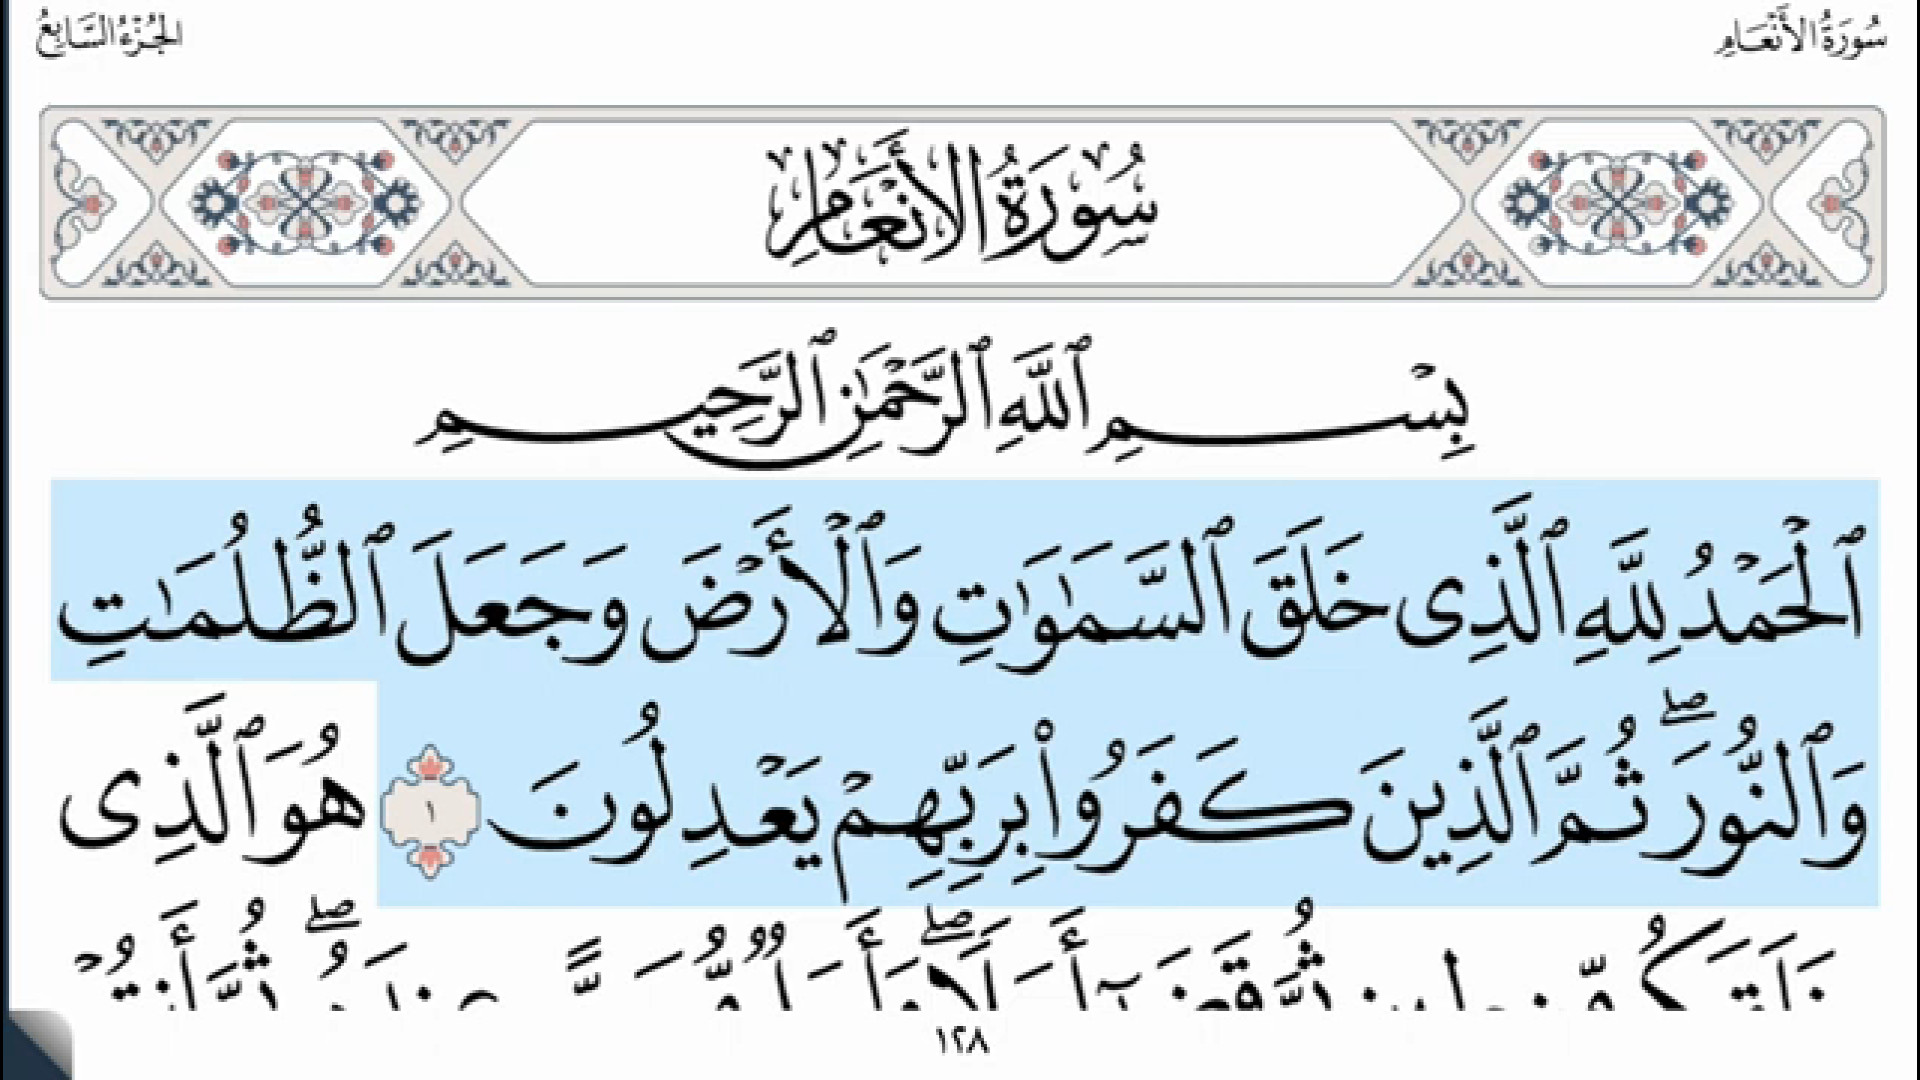 سُورَةُ الأَنْعَامِ
الجُزْءُ السَّابِعُ
سُورَةُ الأَنْعَامِ
بِسْمِ ٱللَّهِ ٱلرَّحْمَٰنِ ٱلرَّحِيمِ
ٱلْحَمْدُ لِلَّهِ ٱلَّذِى خَلَقَ ٱلسَّمَٰوَٰتِ وَٱلْأَرْضَ وَجَعَلَ ٱلظُّلُمَٰتِ
وَٱلنُّورَ ۖ ثُمَّ ٱلَّذِينَ كَفَرُوا۟ بِرَبِّهِمْ يَعْدِلُونَ ١ هُوَ ٱلَّذِى
١٢٨